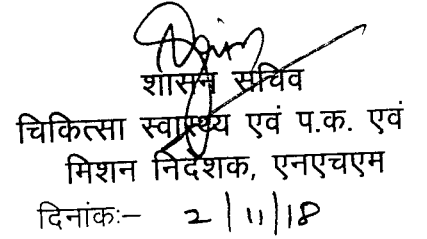 शासन सचिव
चिकित्सा स्वास्थ्य एवं प.क. एवं
मिशन निदेशक, एनएचएम
दिनांकः– 2/11/18